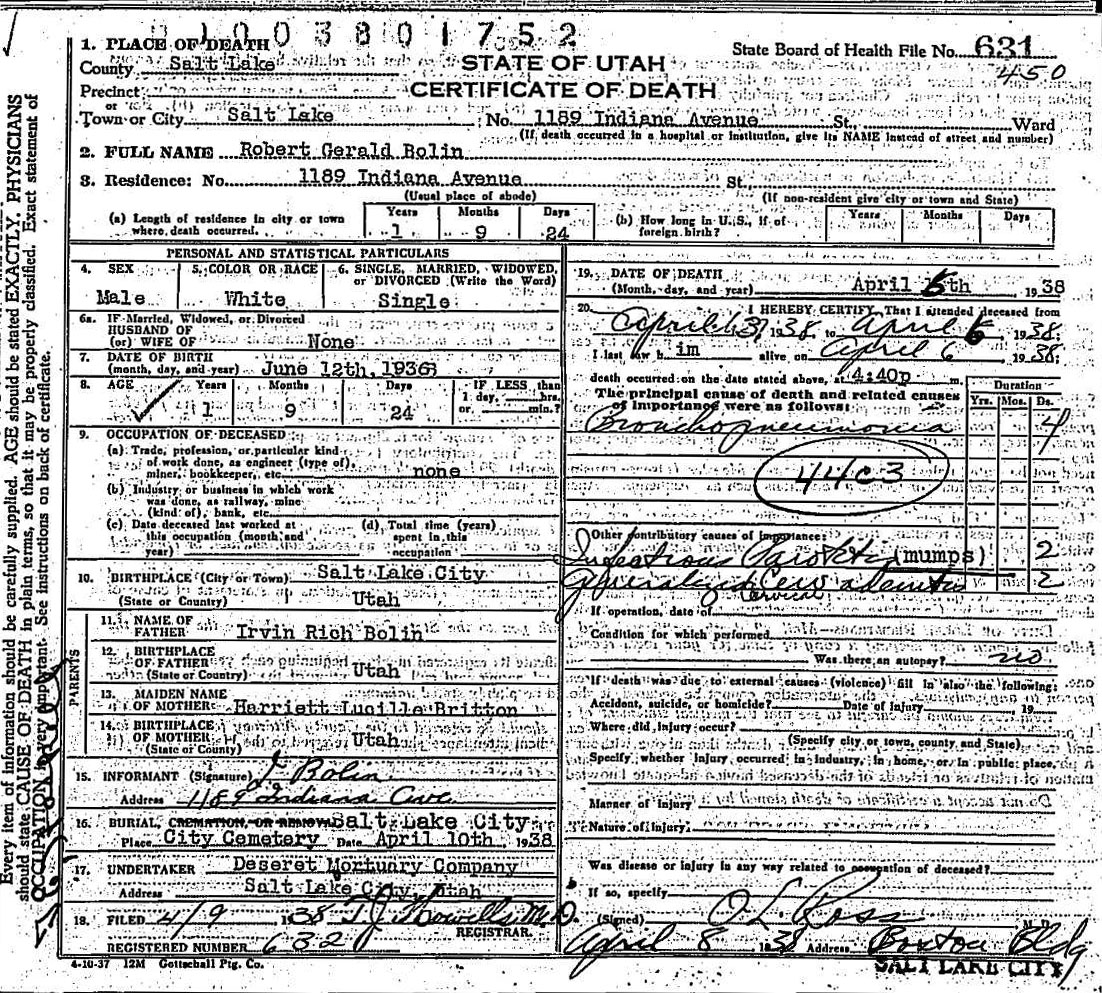 1003801752
1. PLACE OF DEATH
State Board of Health File No. 631
County Salt Lake
STATE OF UTAH
450
Precinct
CERTIFICATE OF DEATH
or
Town or City Salt Lake No. 1189 Indiana Avenue St. Ward
(If death occurred in a hospital or institution, give its NAME instead of street and number)
2. FULL NAME Robert Gerald Bolin
3. Residence: No. 1189 Indiana Avenue St.
(Usual place of abode) (If non-resident give city or town and State)
(a) Length of residence in city or town where death occurred. Years 1 Months 9 Days 24
(b) How long in U.S., if of foreign birth? Years Months Days
PERSONAL AND STATISTICAL PARTICULARS
4. SEX Male
5. COLOR OR RACE White
6. SINGLE, MARRIED, WIDOWED, or DIVORCED (Write the Word) Single
6a. If Married, Widowed, or Divorced
HUSBAND OF
(or) WIFE OF None
7. DATE OF BIRTH
(month, day, and year) June 12th, 1936
8. AGE Years 1 Months 9 Days 24 IF LESS than 1 day, hrs. or min.?
9. OCCUPATION OF DECEASED
(a) Trade, profession, or particular kind
of work done, as engineer (type of),
miner, bookkeeper, etc. none
(b) Industry or business in which work
was done, as railway, mine
(kind of), bank, etc.
(c) Date deceased last worked at this occupation (month and year)
(d) Total time (years) spent in this occupation
10. BIRTHPLACE (City or Town) Salt Lake City
(State or Country) Utah
PARENTS
11. NAME OF
FATHER Irvin Rich Bolin
12. BIRTHPLACE
OF FATHER
(State or Country) Utah
13. MAIDEN NAME
OF MOTHER Harriett Lucille Britton
14. BIRTHPLACE
OF MOTHER
(State or County) Utah
15. INFORMANT (Signature) I Bolin
Address 1189 Indiana Ave
16. BURIAL, CREMATION, OR REMOVAL Salt Lake City
Place City Cemetery Date April 10th 1938
17. UNDERTAKER Deseret Mortuary Company
Address Salt Lake City, Utah
18. FILED 4/9 1938 T.J. Howells M.D.
REGISTRAR.
REGISTERED NUMBER 632
4-10-37 12M Gottschall Ptg. Co.
19. DATE OF DEATH
(Month, day, and year) April 6th 1938
20. I HEREBY CERTIFY, That I attended deceased from
April 3, 1938 to April 6 1938
I last saw h im alive on April 6 1938
death occurred on the date stated above, at 4:40p m.
The principal cause of death and related causes
of importance were as follows:
Duration
Yrs. Mos. Ds.
Bronchopneumonia 4
44c3
Other contributory causes of importance:
Infectious Parotitis (mumps) 2
Generalized Cerv adenitis 2
Cervical
If operation, date of
Condition for which performed
Was there an autopsy? no
If death was due to external causes (violence) fill in also the following:
Accident, suicide, or homicide? Date of injury 19
Where did injury occur?
(Specify city or town, county and State)
Specify whether injury occurred in industry, in home, or in public place,
Manner of injury
Nature of injury
Was disease or injury in any way related to occupation of deceased?
If so, specify
(Signed) O L Ross M.D.
April 8 1938 Address Boston Bldg
SALT LAKE CITY
Every item of information should be carefully supplied. AGE should be stated EXACTLY. PHYSICIANS
should state CAUSE OF DEATH in plain terms, so that it may be properly classified. Exact statement of
OCCUPATION is very important. See instructions on back of certificate.